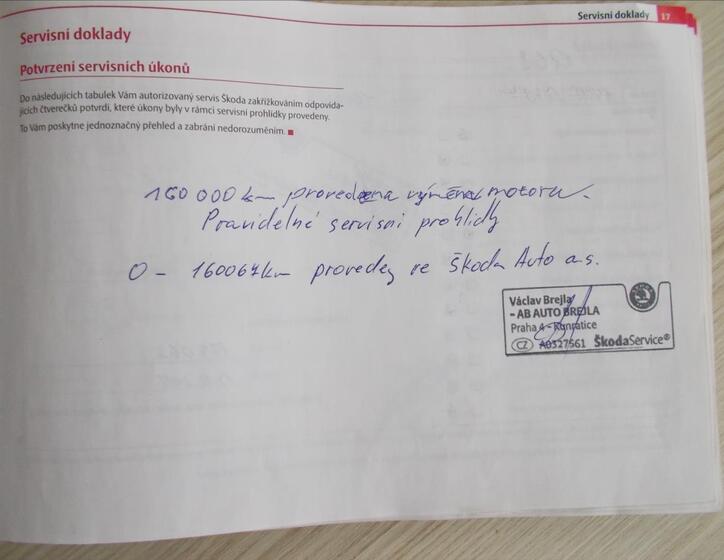 Servisní doklady 17
Servisní doklady
Potvrzení servisních úkonů
Do následujících tabulek Vám autorizovaný servis Škoda zakřížkováním odpovída-
jících čtverečků potvrdí, které úkony byly v rámci servisní prohlídky provedeny.
To Vám poskytne jednoznačný přehled a zabrání nedorozuměním.
160 000 km provedena výměna motoru.
Pravidelné servisní prohlídy
0 - 160067km provedeny ve Škoda Auto a.s.
Václav Brejla
- AB AUTO BREJLA
Praha 4 - Kunratice
CZ A0327561 ŠkodaService®